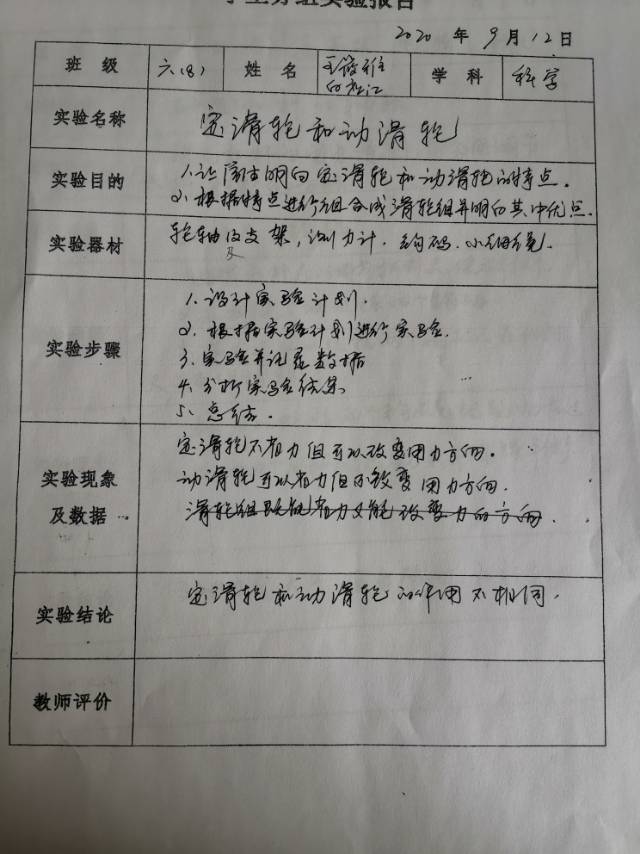 学生分组实验报告
2020 年 9 月 12 日
班 级 六(8) 姓 名 学 科 科学
实验名称 定滑轮和动滑轮
实验目的 1.让同志明白定滑轮和动滑轮的特点.
2.根据特点进行组合成滑轮组并明白其中优点.
实验器材 轮轴及支架,测力计.钩码.小细绳.
1.设计实验计划.
2.根据实验计划进行实验.
实验步骤 3.实验并记录数据
4.分析实验结果
5.总结.
定滑轮不省力但可以改变用力方向.
实验现象 动滑轮可以省力但不改变用力方向.
及数据 滑轮组既能省力又能改变力的方向.
实验结论 定滑轮和动滑轮的作用不相同.
教师评价